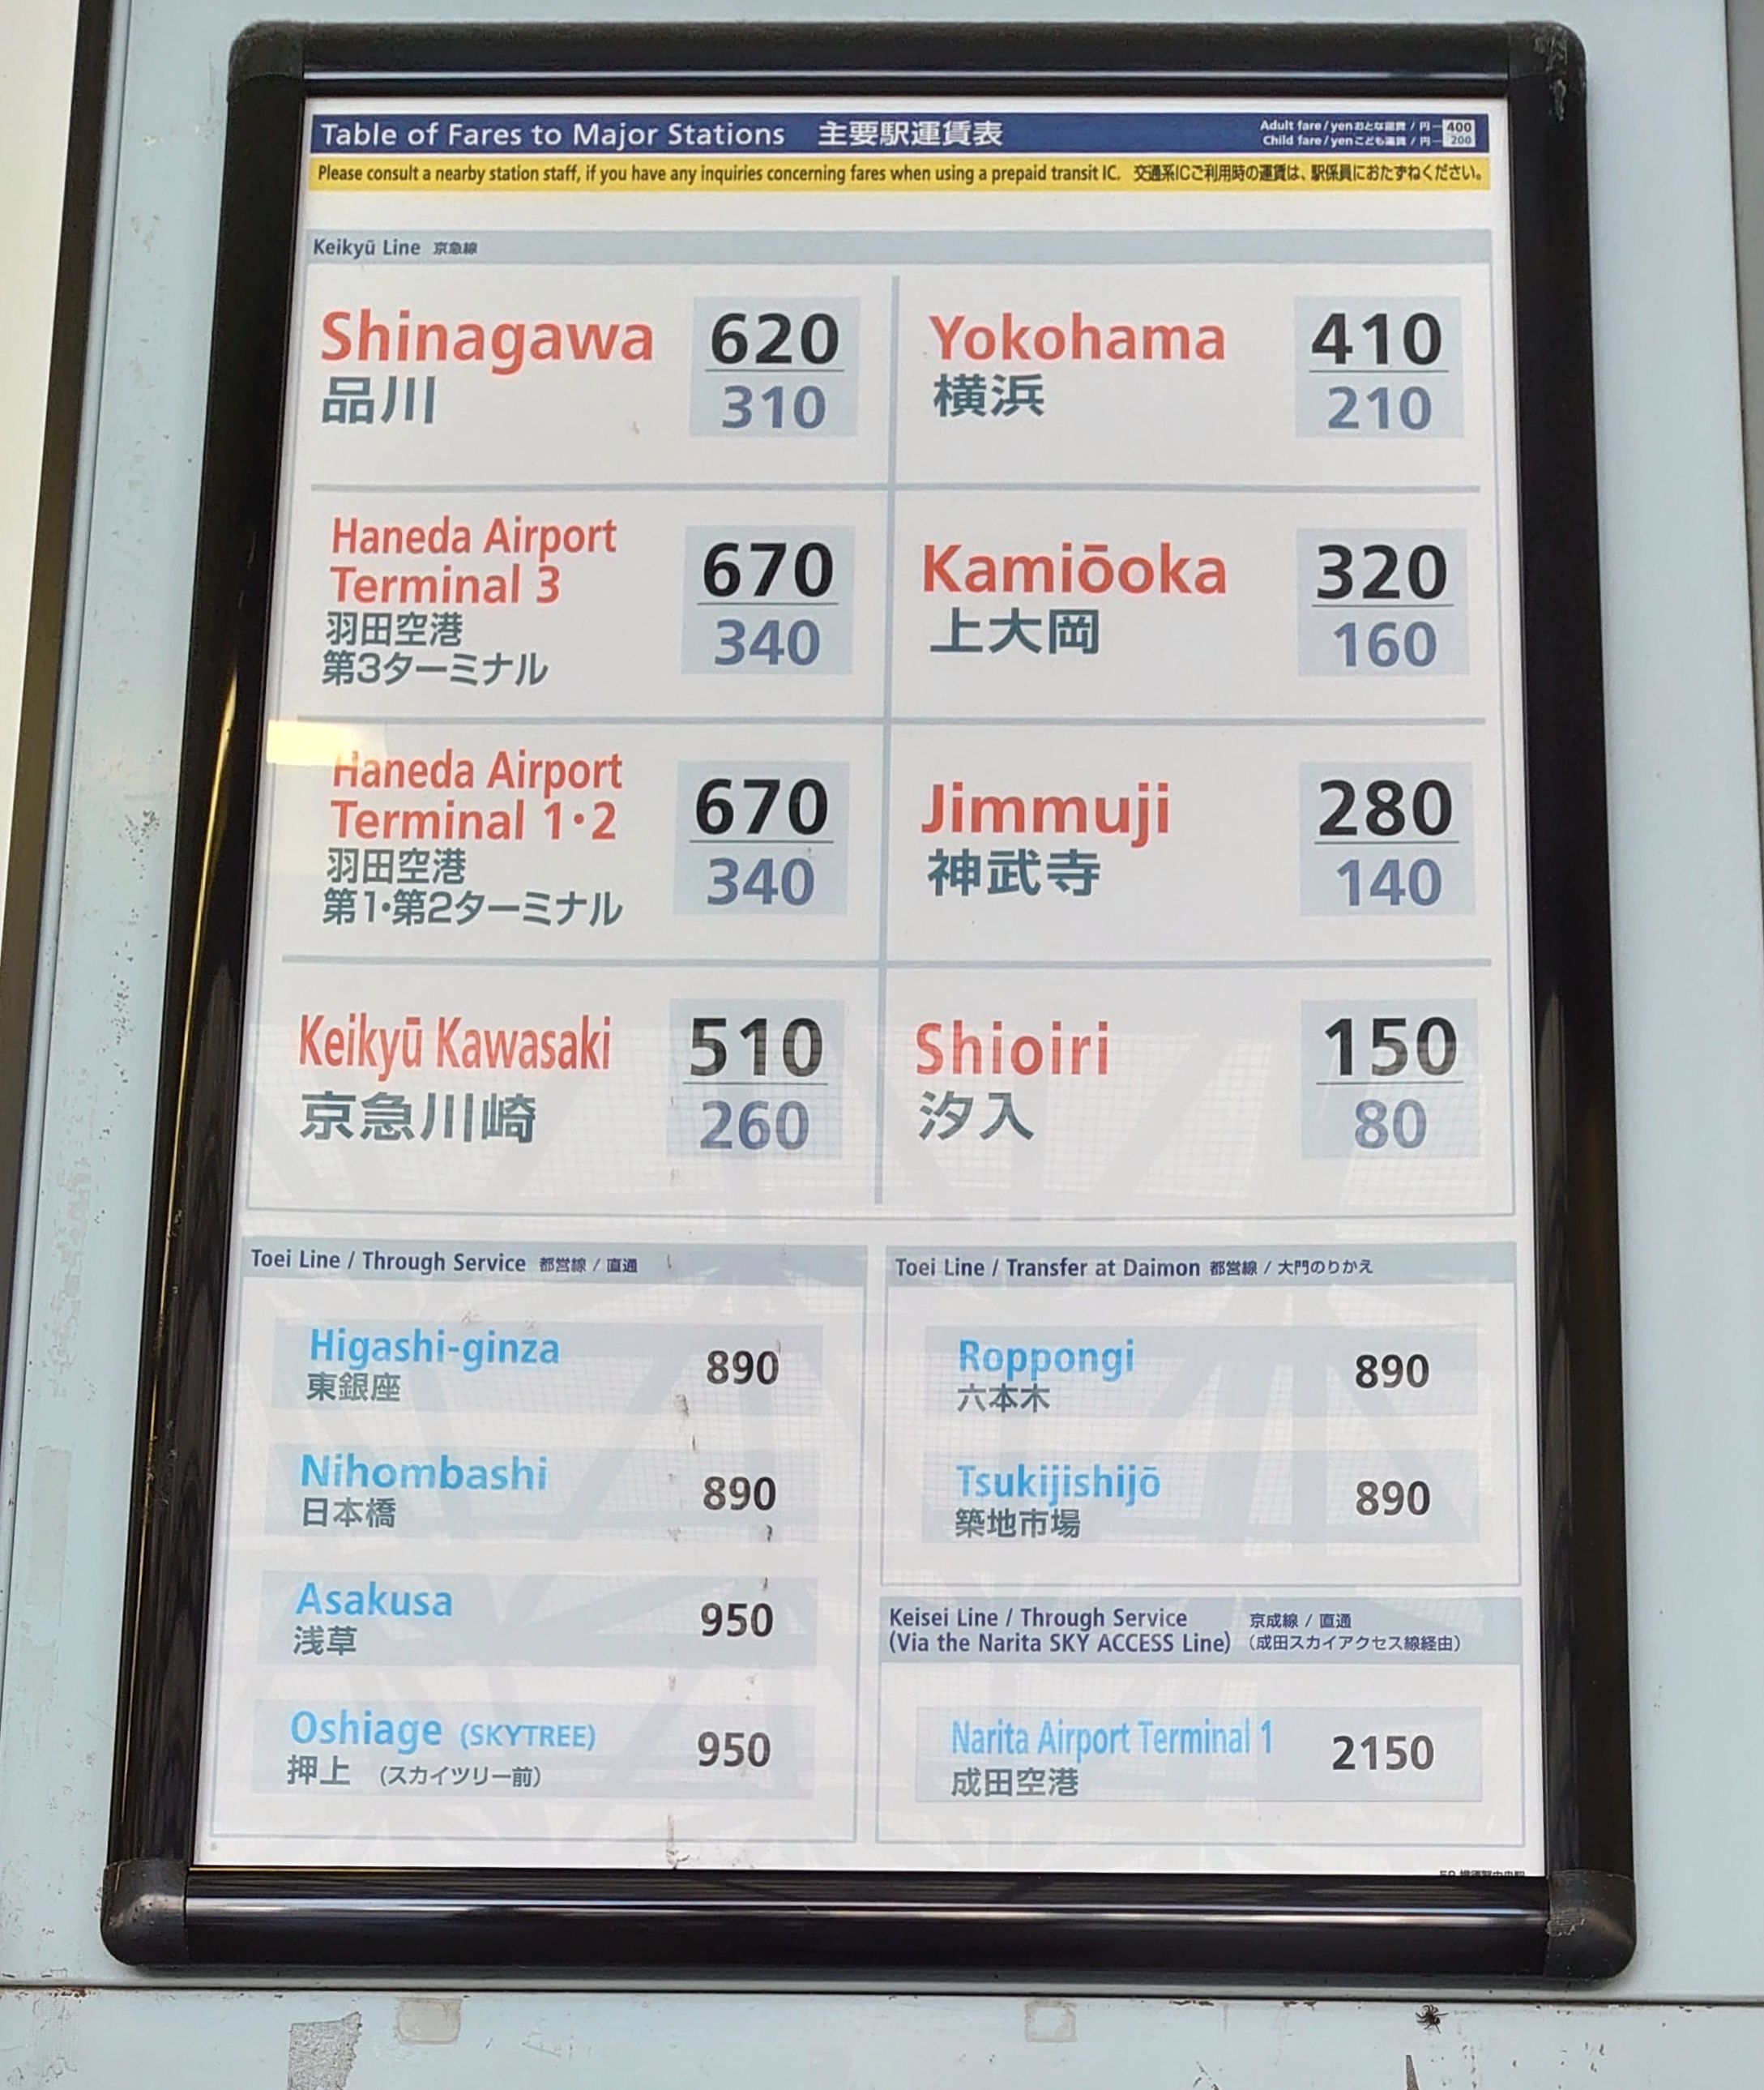 Table of Fares to Major Stations 主要駅運賃表
Adult fare/yen おとな運賃 / 円 400
Child fare/yen こども運賃 / 円 200
Please consult a nearby station staff, if you have any inquiries concerning fares when using a prepaid transit IC. 交通系ICご利用時の運賃は、駅係員におたずねください。
Keikyū Line 京急線
Shinagawa 620
品川 310
Yokohama 410
横浜 210
Haneda Airport
Terminal 3 670
羽田空港
第3ターミナル 340
Kamiōoka 320
上大岡 160
Haneda Airport
Terminal 1・2 670
羽田空港
第1・第2ターミナル 340
Jimmuji 280
神武寺 140
Keikyū Kawasaki 510
京急川崎 260
Shioiri 150
汐入 80
Toei Line / Through Service 都営線 / 直通
Higashi-ginza 890
東銀座
Nihombashi 890
日本橋
Asakusa 950
浅草
Oshiage (SKYTREE) 950
押上 (スカイツリー前)
Toei Line / Transfer at Daimon 都営線 / 大門のりかえ
Roppongi 890
六本木
Tsukijishijō 890
築地市場
Keisei Line / Through Service 京成線 / 直通
(Via the Narita SKY ACCESS Line) (成田スカイアクセス線経由)
Narita Airport Terminal 1 2150
成田空港